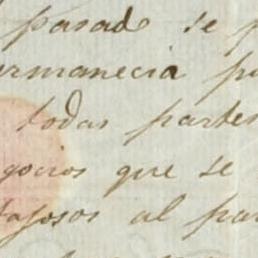 pasado se p
ermanecia pu
todas partes
gocios que se
tajosos al par